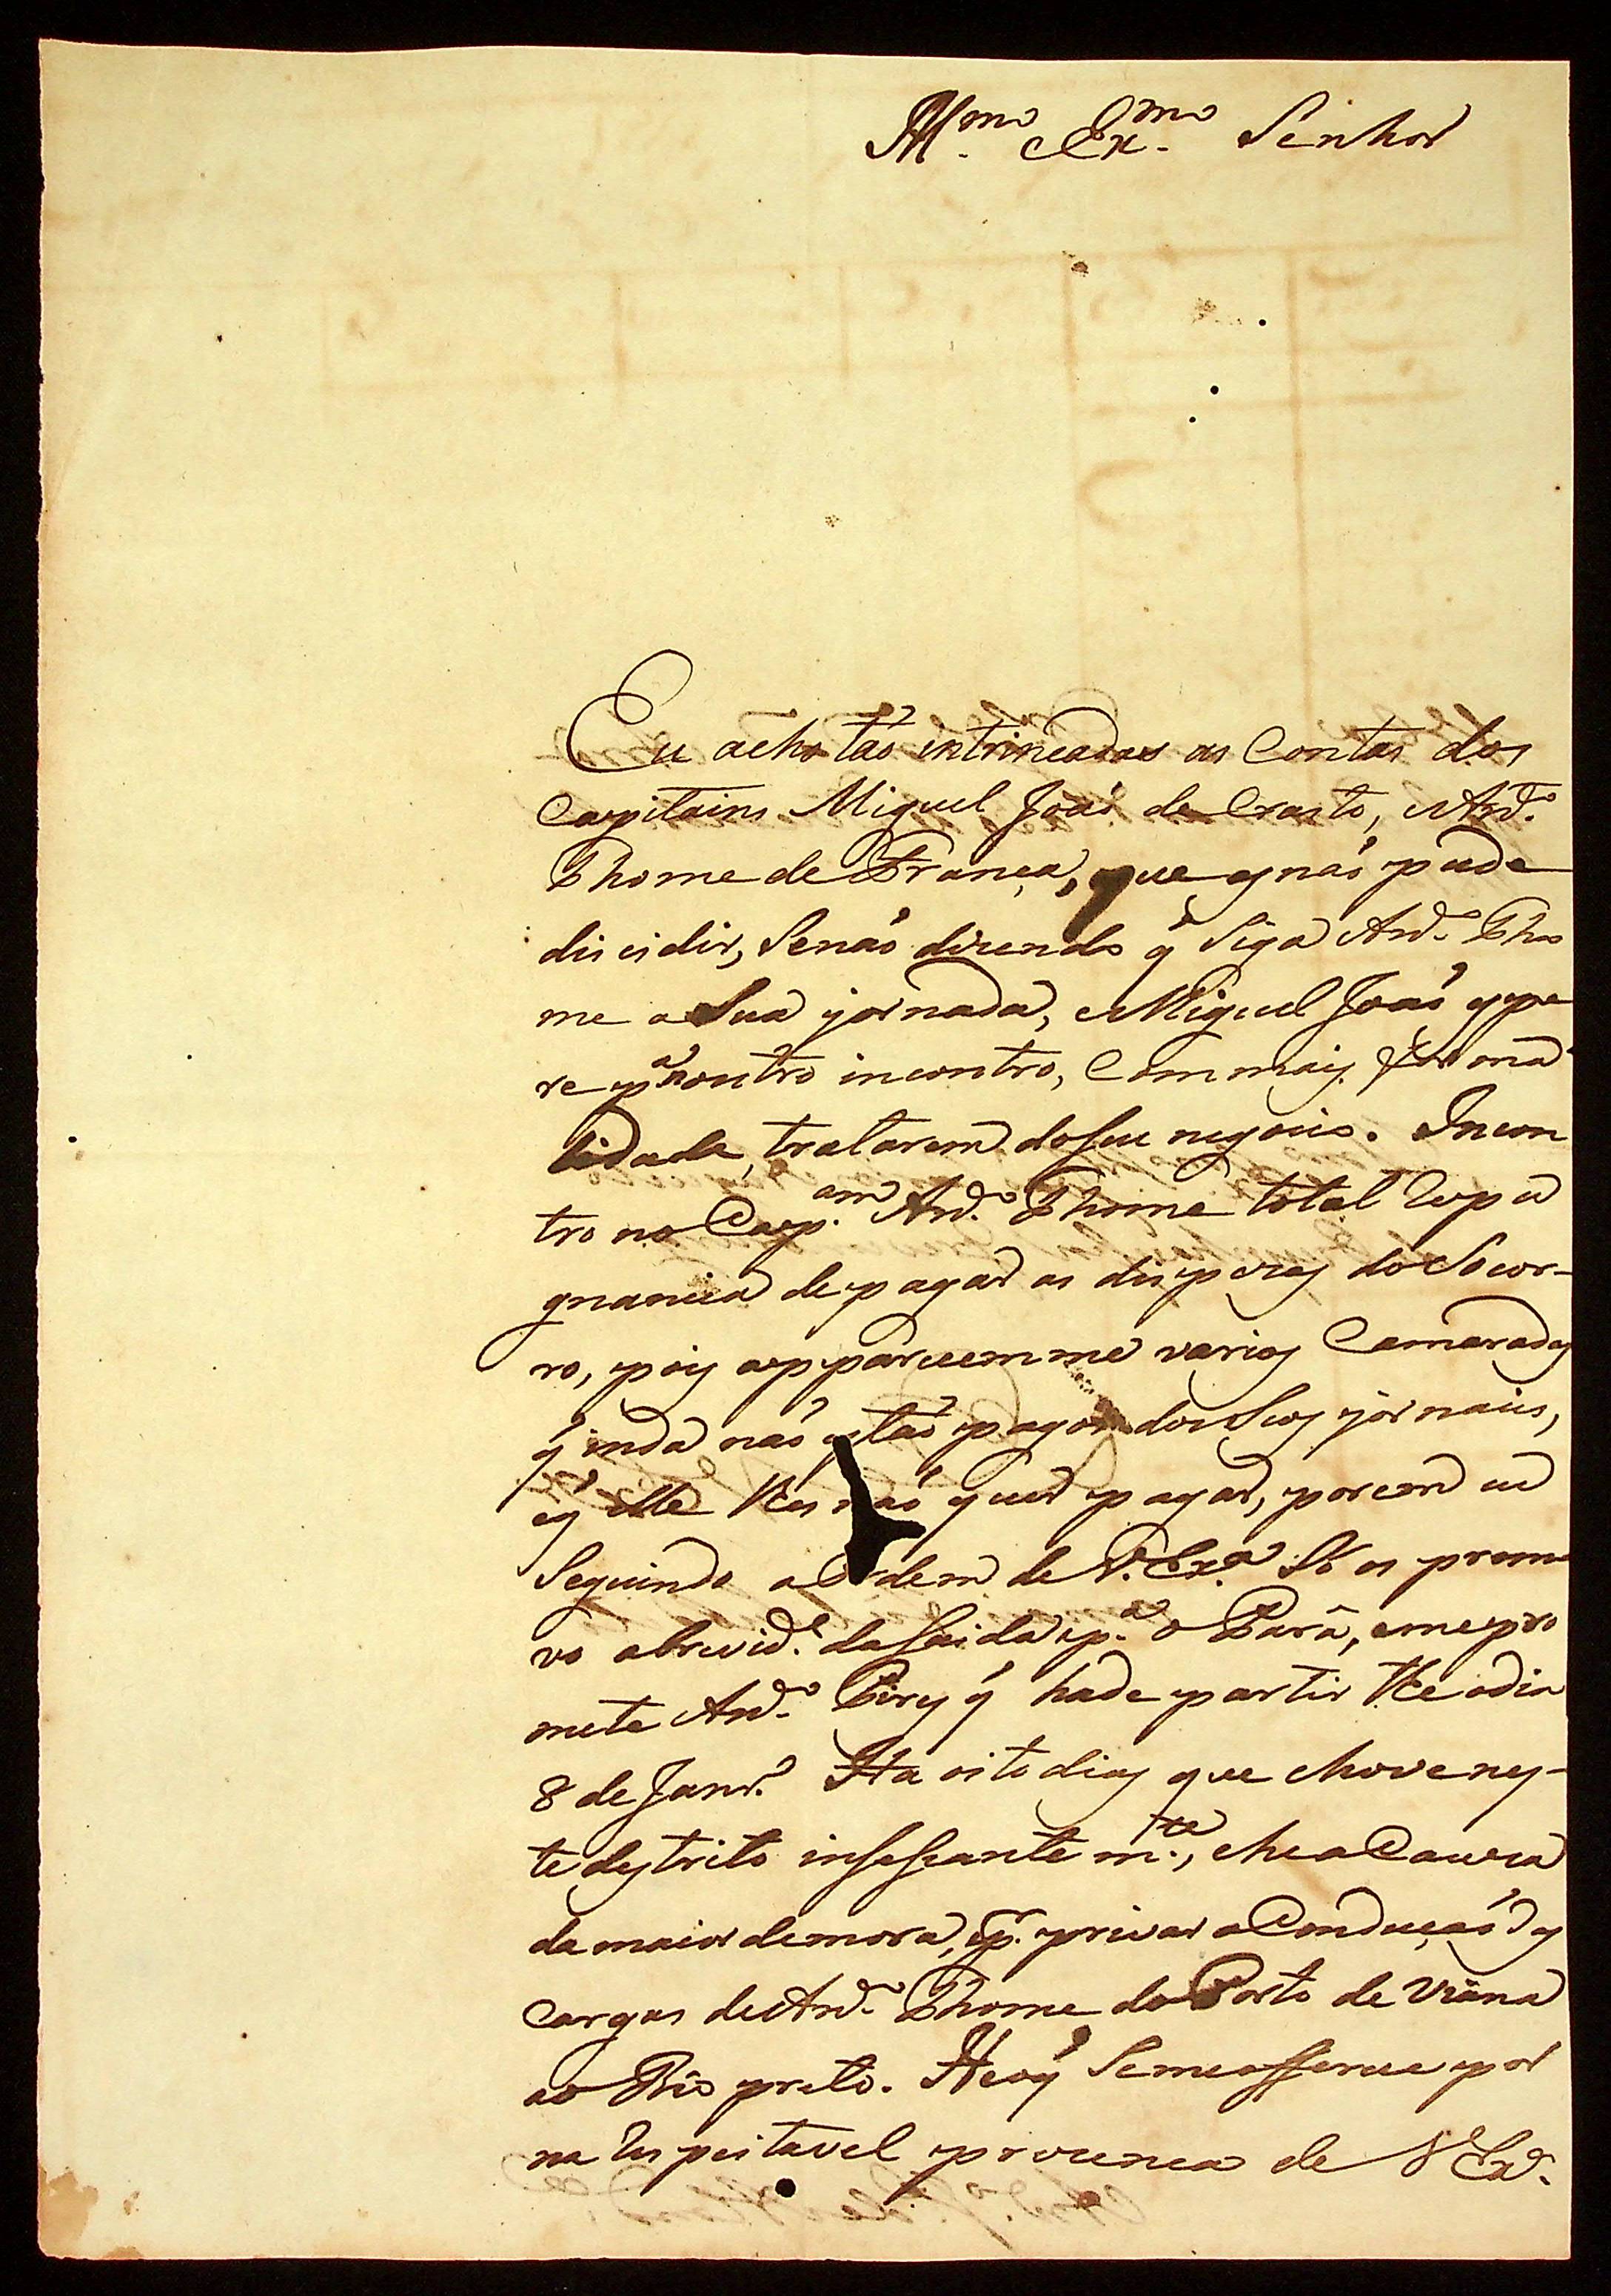 Ill.mo Ex.mo Senhor
Eu acho tão intrincadas as Contas dos
Capitains Miguel João de Crasto, e An.to
Thome de França, que eu não pude
discidir, Senão dizendo q̃ Siga An.to Tho
me a Sua jornada, e Miguel João espe
re p.a noutro incontro, Com mais forma
lidade, tratarem do Seu negocio. Incon
tro no Cap.am An.to Thome total repu
gnancia de pagar as dispezas do Socor-
ro, pois apparecem me varios Camaradas
q̃ inda não estão pagos dos Seos jornais,
e q̃ elle lhes não quer pagar, porem eu
Seguindo a Ordem de V. Ex.a Só os promo
vo a brevid.e da Saida p.a o Pará, e me pro
mete An.to Pires q̃ hade partir the o dia
8 de Janr.o Ha oito dias que chove nes-
te destrito insessante m.te, e he a Cauza
da maior demora, p.r privar a Condução das
Cargas de An.to Thome do Porto de Viana
ao Rio preto. He o q̃ Se me offerece por
na respeitavel prezença de V Ex.a